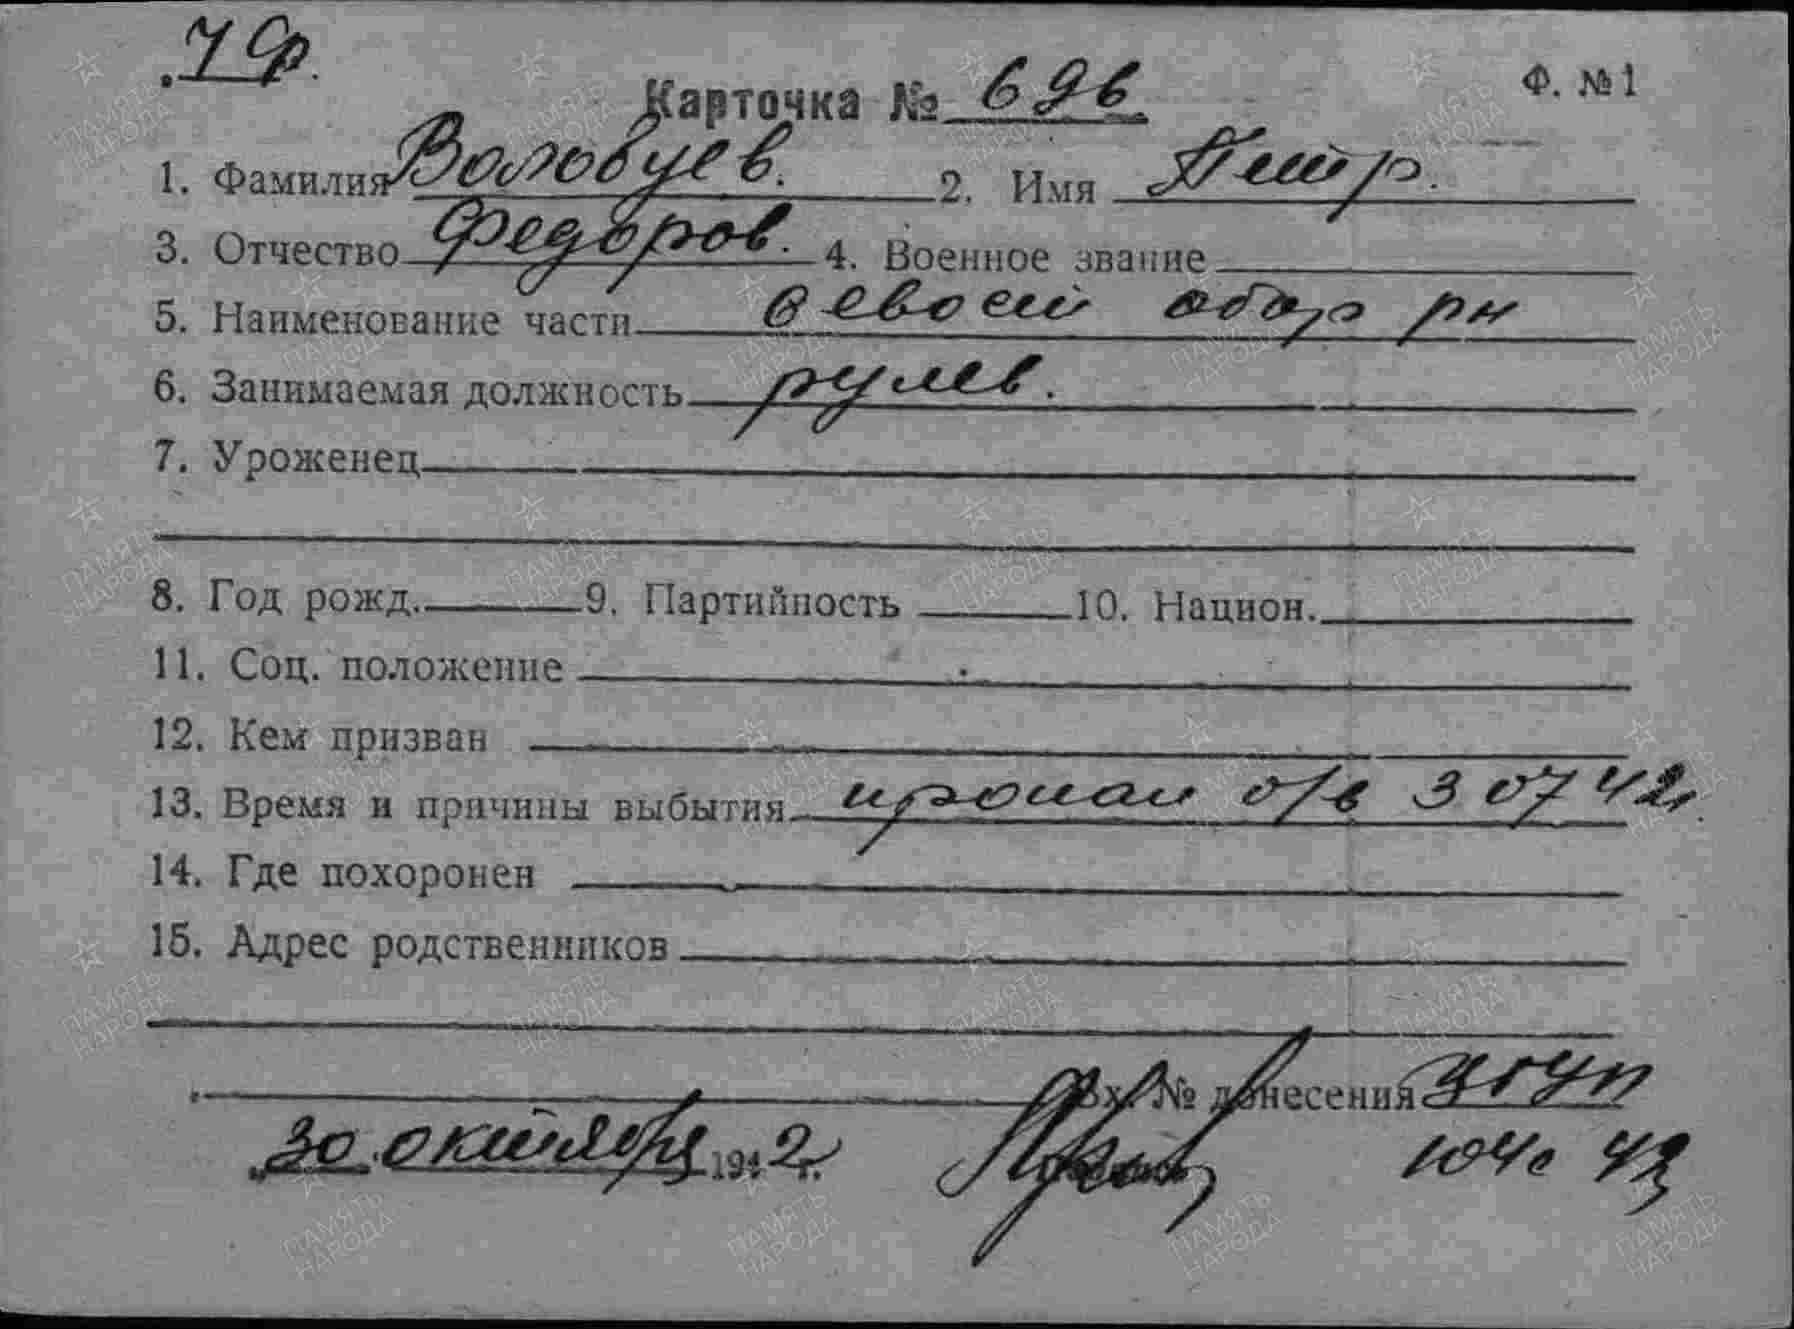 ЧФ.
Ф. №1
Карточка № 696.
1. Фамилия Воловуев. 2. Имя Петр.
3. Отчество Федоров. 4. Военное звание
5. Наименование части Севост обор рн
6. Занимаемая должность рулев.
7. Уроженец
8. Год рожд. 9. Партийность 10. Национ.
11. Соц. положение
12. Кем призван
13. Время и причины выбытия пропал б/в 3 07 42г.
14. Где похоронен
15. Адрес родственников
Вх. № донесения
„30“ октября 1942г.
ПАМЯТЬ НАРОДА